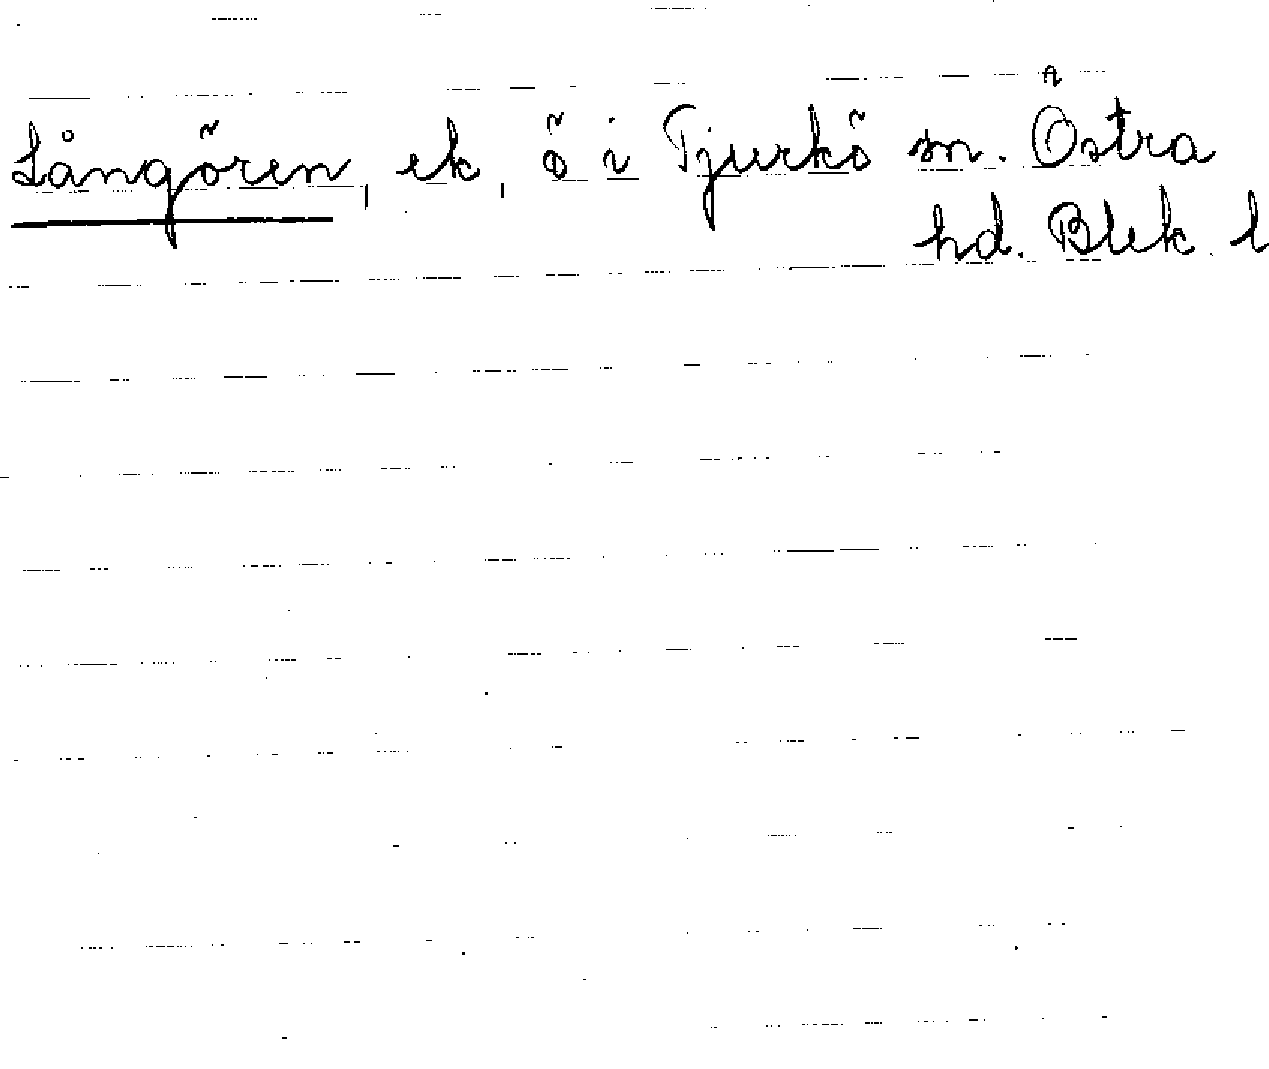 Långören, ek, ö i Tjurkö sn. Östra
hd. Blek. l